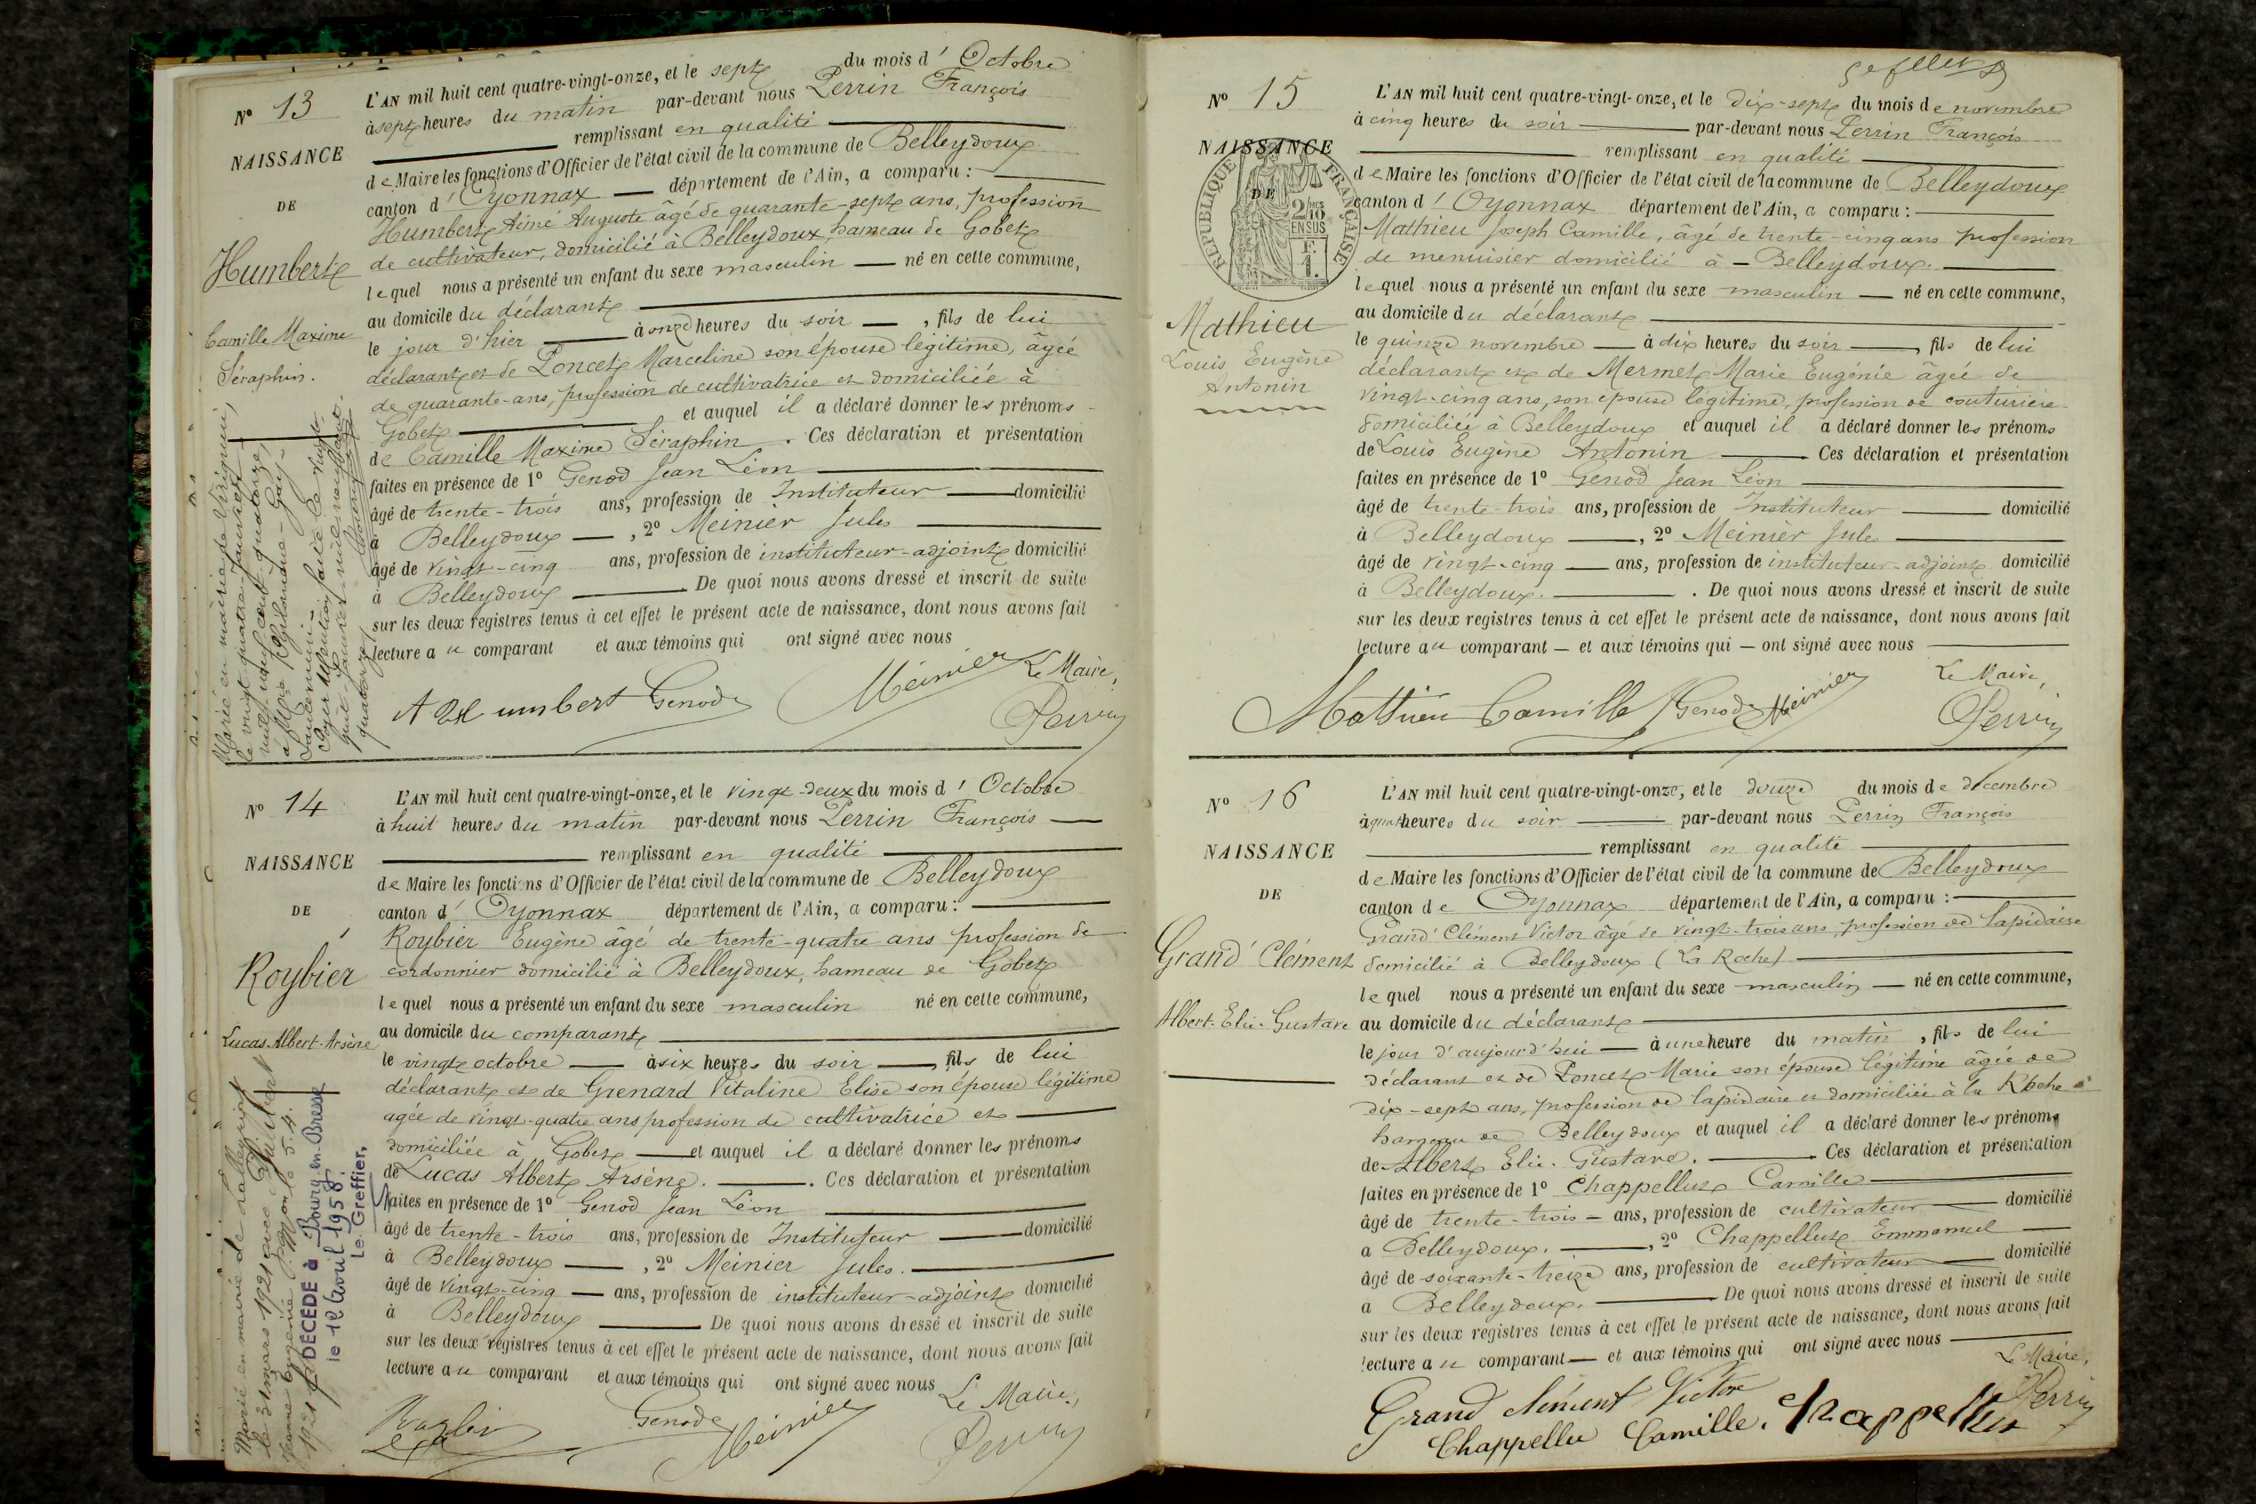 N° 13
NAISSANCE
DE
Humbert
Camille Maxime
Séraphin.
L'AN mil huit cent quatre-vingt-onze, et le sept du mois d'Octobre
à sept heures du matin par-devant nous Perrin François
remplissant en qualité
de Maire les fonctions d'Officier de l'état civil de la commune de Belleydoux
canton d'Oyonnax département de l'Ain, a comparu :
Humbert Aimé Auguste âgé de quarante-sept ans, profession
de cultivateur, domicilié à Belleydoux, hameau de Gobet
lequel nous a présenté un enfant du sexe masculin né en cette commune,
au domicile du déclarant
le jour d'hier à onze heures du soir, fils de lui
déclarant et de Poncet Marceline son épouse légitime, âgée
de quarante-ans, profession de cultivatrice et domiciliée à
Gobet et auquel il a déclaré donner les prénoms
de Camille Maxime Séraphin. Ces déclaration et présentation
faites en présence de 1° Genod Jean Léon
âgé de trente-trois ans, profession de Instituteur domicilié
à Belleydoux, 2° Meinier Jules
âgé de vingt-cinq ans, profession de instituteur-adjoint domicilié
à Belleydoux De quoi nous avons dressé et inscrit de suite
sur les deux registres tenus à cet effet le présent acte de naissance, dont nous avons fait
lecture au comparant et aux témoins qui ont signé avec nous
Le Maire,
A Humbert Genod Meinier Perrin
Marié en mairie de
le vingt-quatre Janvier
mil neuf cent quatorze
N° 14
NAISSANCE
DE
Roybier
Lucas-Albert-Arsène
L'AN mil huit cent quatre-vingt-onze, et le vingt-deux du mois d'Octobre
à huit heures du matin par-devant nous Perrin François
remplissant en qualité
de Maire les fonctions d'Officier de l'état civil de la commune de Belleydoux
canton d'Oyonnax département de l'Ain, a comparu :
Roybier Eugène âgé de trente-quatre ans profession de
cordonnier domicilié à Belleydoux, hameau de Gobet
lequel nous a présenté un enfant du sexe masculin né en cette commune,
au domicile du comparant
le vingt octobre à six heures du soir, fils de lui
déclarant et de Grenard Vitaline Elise son épouse légitime
agée de vingt-quatre ans profession de cultivatrice et
domiciliée à Gobet et auquel il a déclaré donner les prénoms
de Lucas Albert Arsène. Ces déclaration et présentation
faites en présence de 1° Genod Jean Léon
âgé de trente-trois ans, profession de Instituteur domicilié
à Belleydoux, 2° Meinier Jules.
âgé de vingt-cinq ans, profession de instituteur-adjoint domicilié
à Belleydoux De quoi nous avons dressé et inscrit de suite
sur les deux registres tenus à cet effet le présent acte de naissance, dont nous avons fait
lecture au comparant et aux témoins qui ont signé avec nous
Le Maire,
Genod Meinier Perrin
Marié en mairie de
le 31 mars 1921 avec
DÉCÉDÉ à Bourg-en-Bresse
le 12 Avril 1958.
Le Greffier,
N° 15
NAISSANCE
DE
RÉPUBLIQUE FRANÇAISE
2/10 EN SUS
Mathieu
Louis Eugène
Antonin
L'AN mil huit cent quatre-vingt-onze, et le dix-sept du mois de novembre
à cinq heures du soir par-devant nous Perrin François
remplissant en qualité
de Maire les fonctions d'Officier de l'état civil de la commune de Belleydoux
canton d'Oyonnax département de l'Ain, a comparu :
Mathieu Joseph Camille, âgé de trente-cinq ans profession
de menuisier domicilié à Belleydoux.
lequel nous a présenté un enfant du sexe masculin né en cette commune,
au domicile du déclarant
le quinze novembre à dix heures du soir, fils de lui
déclarant et de Mermet Marie Eugénie âgée de
vingt-cinq ans, son épouse légitime, profession de couturière
domiciliée à Belleydoux et auquel il a déclaré donner les prénoms
de Louis Eugène Antonin Ces déclaration et présentation
faites en présence de 1° Genod Jean Léon
âgé de trente-trois ans, profession de Instituteur domicilié
à Belleydoux, 2° Meinier Jules
âgé de vingt-cinq ans, profession de instituteur-adjoint domicilié
à Belleydoux. De quoi nous avons dressé et inscrit de suite
sur les deux registres tenus à cet effet le présent acte de naissance, dont nous avons fait
lecture au comparant et aux témoins qui ont signé avec nous
Le Maire,
Mathieu Camille Genod Meinier Perrin
N° 16
NAISSANCE
DE
Grand' Clément
Albert-Elie-Gustave
L'AN mil huit cent quatre-vingt-onze, et le douze du mois de décembre
à quatre heures du soir par-devant nous Perrin François
remplissant en qualité
de Maire les fonctions d'Officier de l'état civil de la commune de Belleydoux
canton de Oyonnax département de l'Ain, a comparu :
Grand' Clément Victor âgé de vingt-trois ans, profession de lapidaire
domicilié à Belleydoux (La Roche)
lequel nous a présenté un enfant du sexe masculin né en cette commune,
au domicile du déclarant
le jour d'aujourd'hui à une heure du matin, fils de lui
déclarant et de Poncet Marie son épouse légitime âgée de
dix-sept ans, profession de lapidaire et domiciliée à la Roche
hameau de Belleydoux et auquel il a déclaré donner les prénoms
de Albert Elie Gustave. Ces déclaration et présentation
faites en présence de 1° Chappelluz Camille
âgé de trente-trois ans, profession de cultivateur domicilié
a Belleydoux., 2° Chappelluz Emmanuel
âgé de soixante-treize ans, profession de cultivateur domicilié
a Belleydoux. De quoi nous avons dressé et inscrit de suite
sur les deux registres tenus à cet effet le présent acte de naissance, dont nous avons fait
lecture au comparant et aux témoins qui ont signé avec nous
Le Maire,
Grand clément Victor Perrin
Chappelluz Camille. Chappelluz